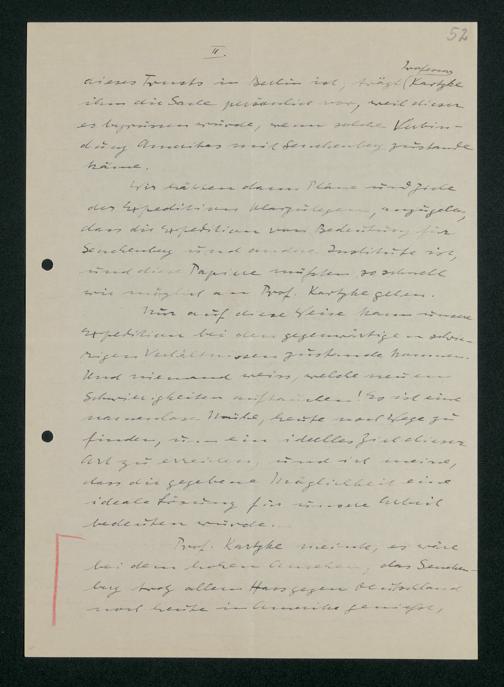 52
II.
Professor
dieses Trusts in Berlin ist, trägt (Kartzke
ihm die Sache persönlich vor, weil dieser
es begrüssen würde, wenn solche Verbin-
dung Amerikas mit Senckenberg zustande
käme.
Wir hätten dann Pläne und Ziele
der Expedition klarzulegen, anzugeben,
dass die Expedition von Bedeutung für
Senckenberg und andere Institute ist,
und diese Papiere müssten so schnell
wie möglich an Prof. Kartzke gehen.
Nur auf diese Weise kann unsere
Expedition bei den gegenwärtigen schwie-
rigen Verhältnissen zustande kommen.
Und niemand weiss, welche neuen
Schwierigkeiten auftauchen! Es ist eine
namenlose Mühe, heute noch Wege zu
finden, um ein ideelles Ziel dieser
Art zu erreichen, und ich meine,
dass die gegebene Möglichkeit eine
ideale Lösung für unsere Arbeit
bedeuten würde.
Prof. Kartzke meinte, es wäre
bei dem hohen Ansehen, das Sencken-
berg trotz allem Hass gegen Deutschland
noch heute in Amerika geniesst,